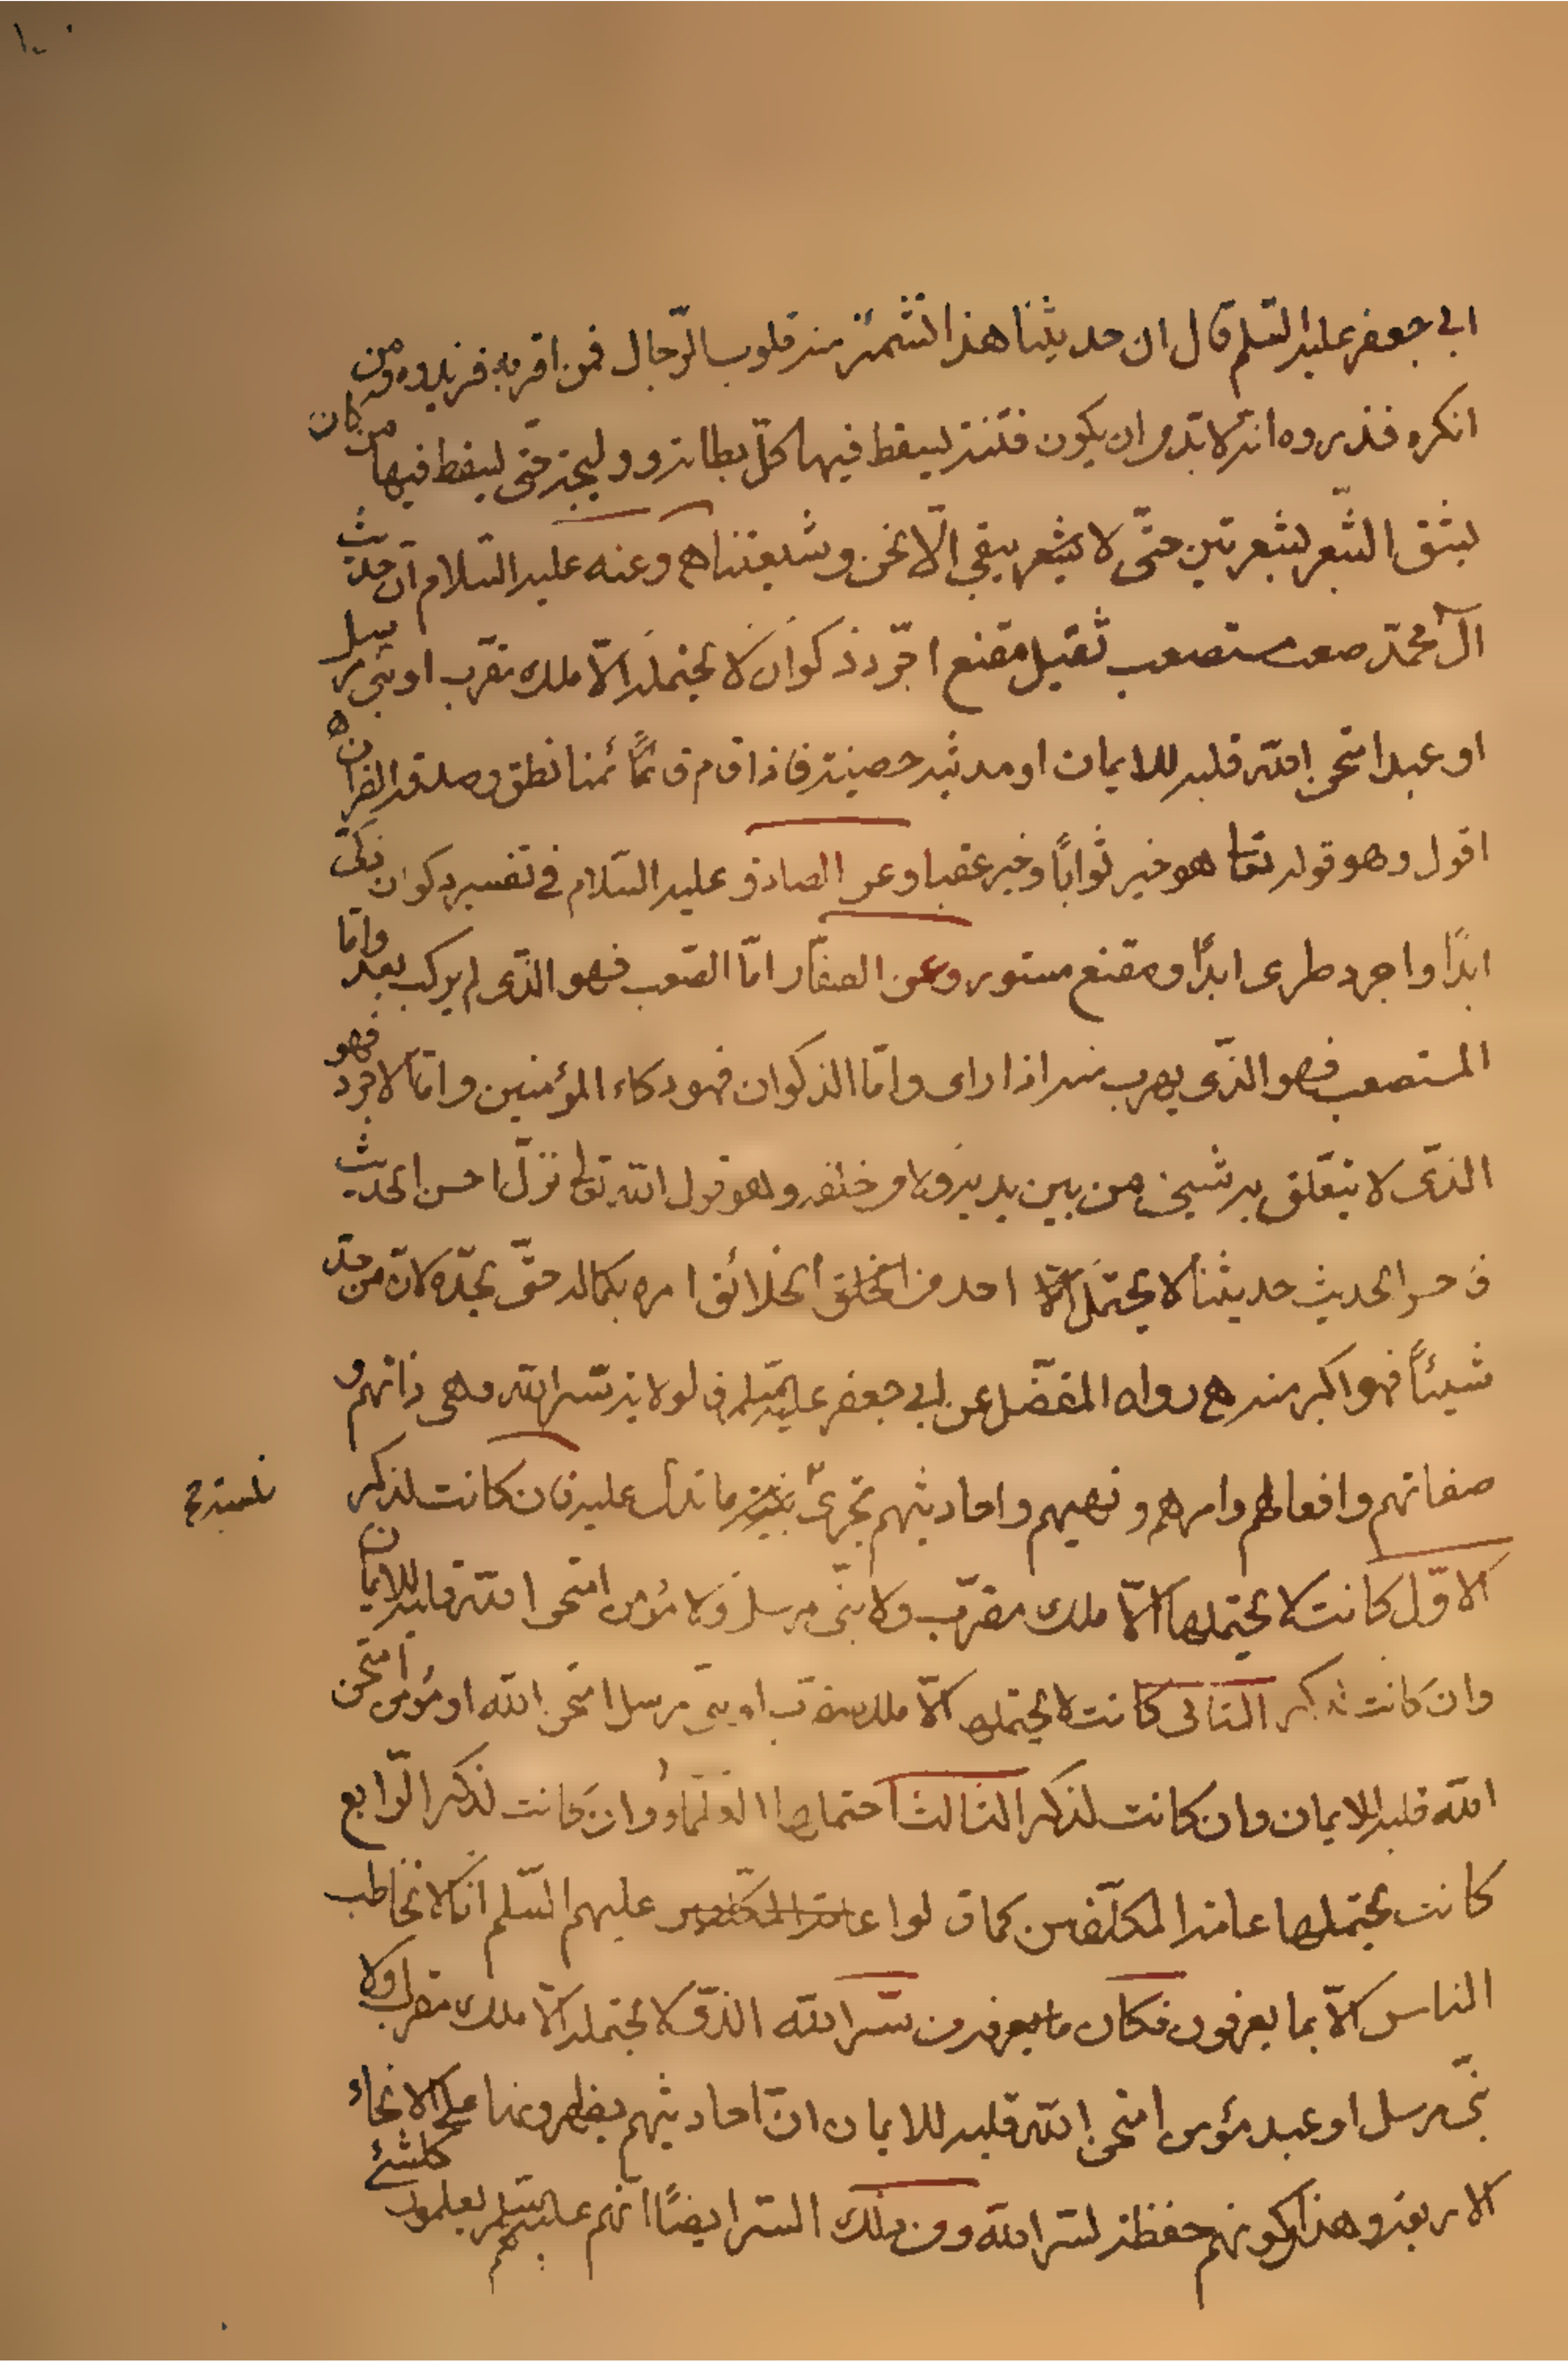 ابي جعفر عليه السلم قال ان حديثنا هذا تشمئز منه قلوب الرّجال فمن اقر به فزيدوه ومن
انكره فذروه انه لا بد و ان يكون فتنة يسقط فيها كلّ بطانة و وليجة حتى يسقط فيها من كان
يشق الشّعر بشعرتين حتّى لا يبقي الّا نحن و شيعتنا هج وعنه عليه السّلام انّ حديث
آل محمّد صعب مستصعب ثقيل مقنع اجرد ذكوان لا يحتمله الّا ملك مقرب او نبي مرسل
او عبد امتحن الله قلبه للايمان او مدينة حصينة فاذا قام قائمنا نطق وصدقه القران
اقول وهو قوله تعا هو خير ثوابًا وخير عقبا وعن الصادق عليه السّلام في تفسير ذكوان ذكي
ابدًا واجرد طرى ابدًا ومقنع مستور وعن الصفّار امّا الصّعب فهو الذّى لم يركب بعد وامّا
المستصعب فهو الذّى يهرب منه اذا راى وامّا الذكوان فهو ذكاء المؤمنين وامّا الاجرد فهو
الذّى لا يتعّلق به شيئ من بين يديه ولا من خلفه وهو قول الله تعا نزّل احسن الحديث
فاحسن الحديث حديثنا لا يحتمل احد من الخلائق امره بكماله حتّى يحدّه لانّ من حدّ
شيئاً فهو اكبر منه هج رواه المفضّل عن ابي جعفر عليه السلم ف لولاية سّر الله وهى ذاتهم و
صفاتهم وافعالهم وامرهم و نهيهم واحاديثهم تجرى ما تدل عليه فان كانت لذكر
نسبة م
الاوّل كانت لا يحتملها ملك مقرّب ولا نبّى مرسل ولا مؤمن امتحن الله قلبه للايمان
وان كانت لذكر الثانى كانت لا يحتملها الّا ملك مقرّب او نبي مرسل امتحن الله او مؤمن امتحن
الله قلبه للايمان وان كانت لذكر الثالث احتملها العلماء وان كانت لذكر الرّابع
كانت يحتملها عامة المكلّفين كما قالوا عليهم السّلم انّا لا نخاطب
الناس الّا بما يعرفون فكان ما يعرفون سّر الله الذّى لا يحتمله الّا ملك مقرب ولا
نبّى مرسل او عبد مؤمن امتحن الله قلبه للايمان انّ احاديثهم يظهرونها على الانحاء
الاربعة وهذا لكونهم حفظة لسّر الله ومن ذلك السّر ايضًا انّهم عليهم السّلم يعلمون كلشئ